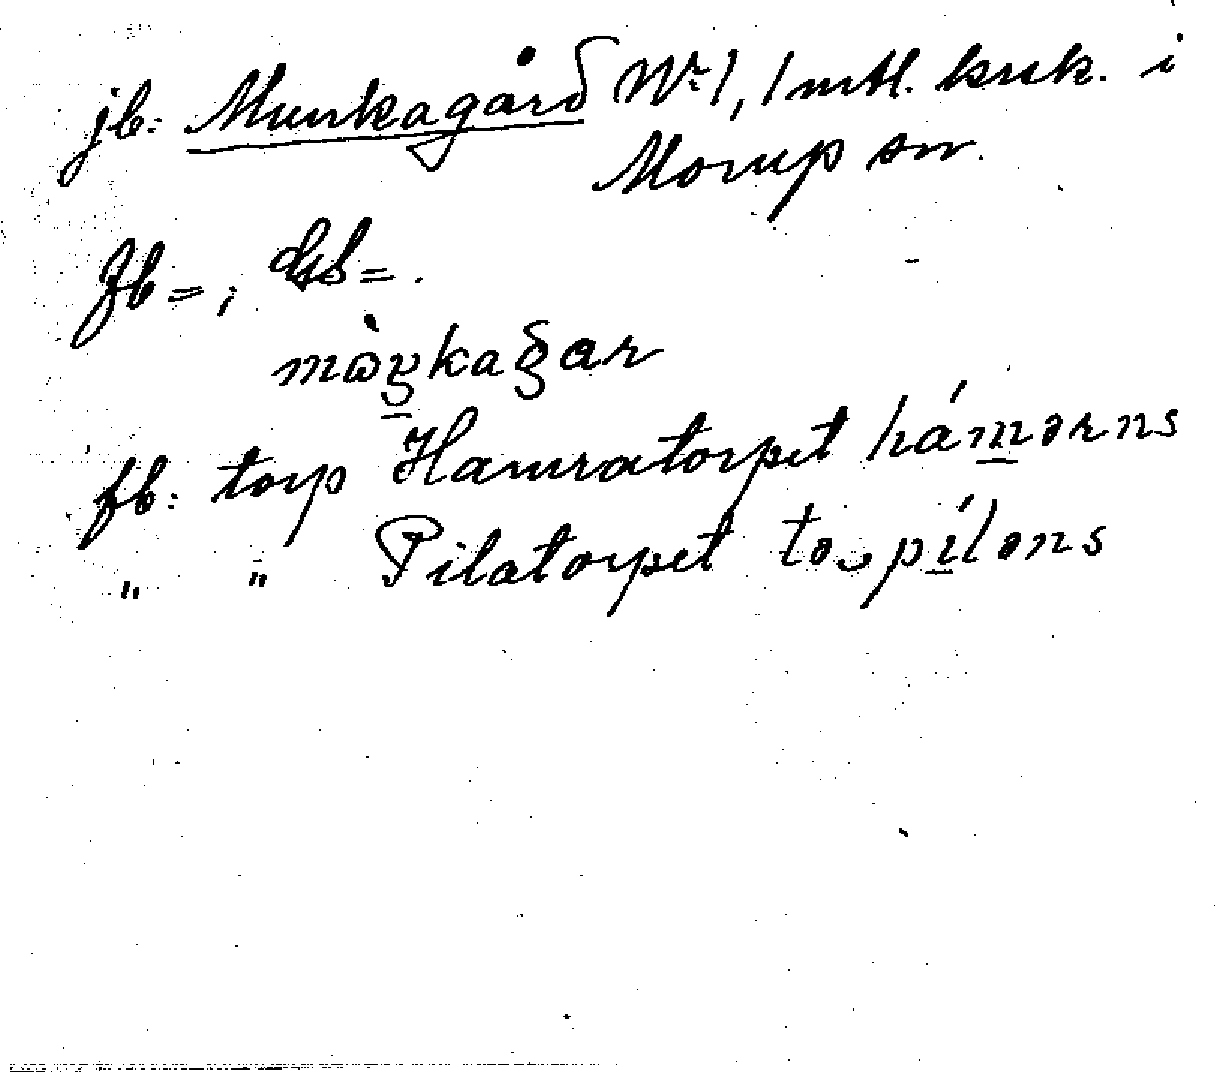 jb: Munkagård Nr 1, 1 mtl. krik. i
Morup sn.
Jb =, Gb = .
mòŋkagar
fb: torp Hamratorpet hámərns
" " Pilatorpet to píləns